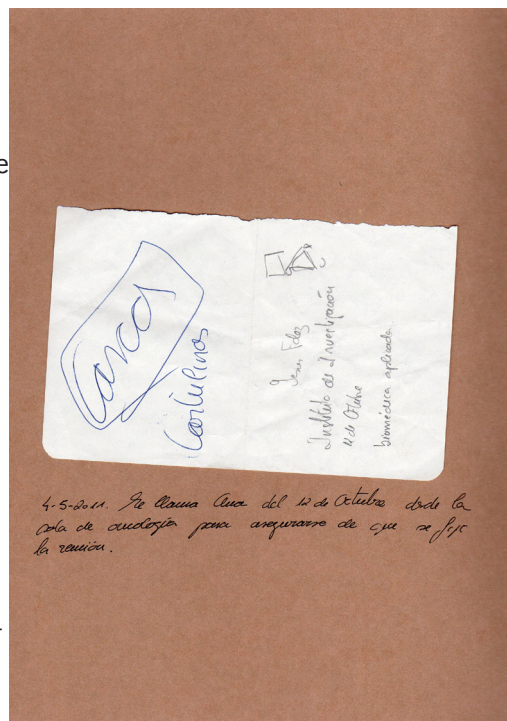 Cartulinas
Fdez
Instituto de Investigación
12 de Octubre
biomédica aplicada
4-5-2011. Me llama Ana del 12 de Octubre desde la
de oncología para asegurarse de que se
la reunión.